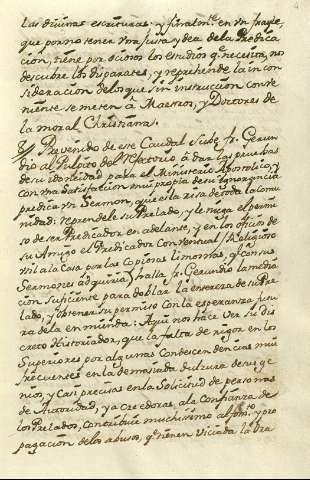 las divinas escrituras: y finalmte en vn frayle,
que por no tener vna justa ydea dela Predica
cion, tiene por ociosos los estudios qe necesita, nos
descubre los disparates, y reprehende la incon
sideracion delos que sin instruccion conve
niente se meten à Maestros, y Doctores de
la moral Christiana.
Prevenido de ese Caudal Sube fr. Gerun
dio al Pulpito del Refectorio à dar las pruebas
de su idoneidad para el Ministerio Apostolico, y
con vna satisfaccion mui propia de su ignorancia
predica vn Sermon, que es la risa de toda la Comu
nidad: reprendele su Prelado, y le niega el permi
so de ser Predicador en adelante, y en los oficios de
su Amigo el Predicador Conventual (Religioso
vtil a la Casa por las copiosas limosnas, qe con sus
Sermones adquiria) halla fr. Gerundio la media
cion suficiente para doblar la entereza de su Pre
lado, y obtener su permiso con la esperanza futu
ra dela enmienda: Aqui nos hace ver su dis
creto Historiador, que la falta de rigor en los
Superiores por algunas Condescendencias mui
frecuentes en la demasiada dulzura de sus ge
nios, y casi precisas en la Solicitud de personas
de Autoridad, ya creedoras, a la Confianza de
los Prelados, contribuie muchisimo al y pro
pagacion delos abusos, qe tienen viciada la Ora